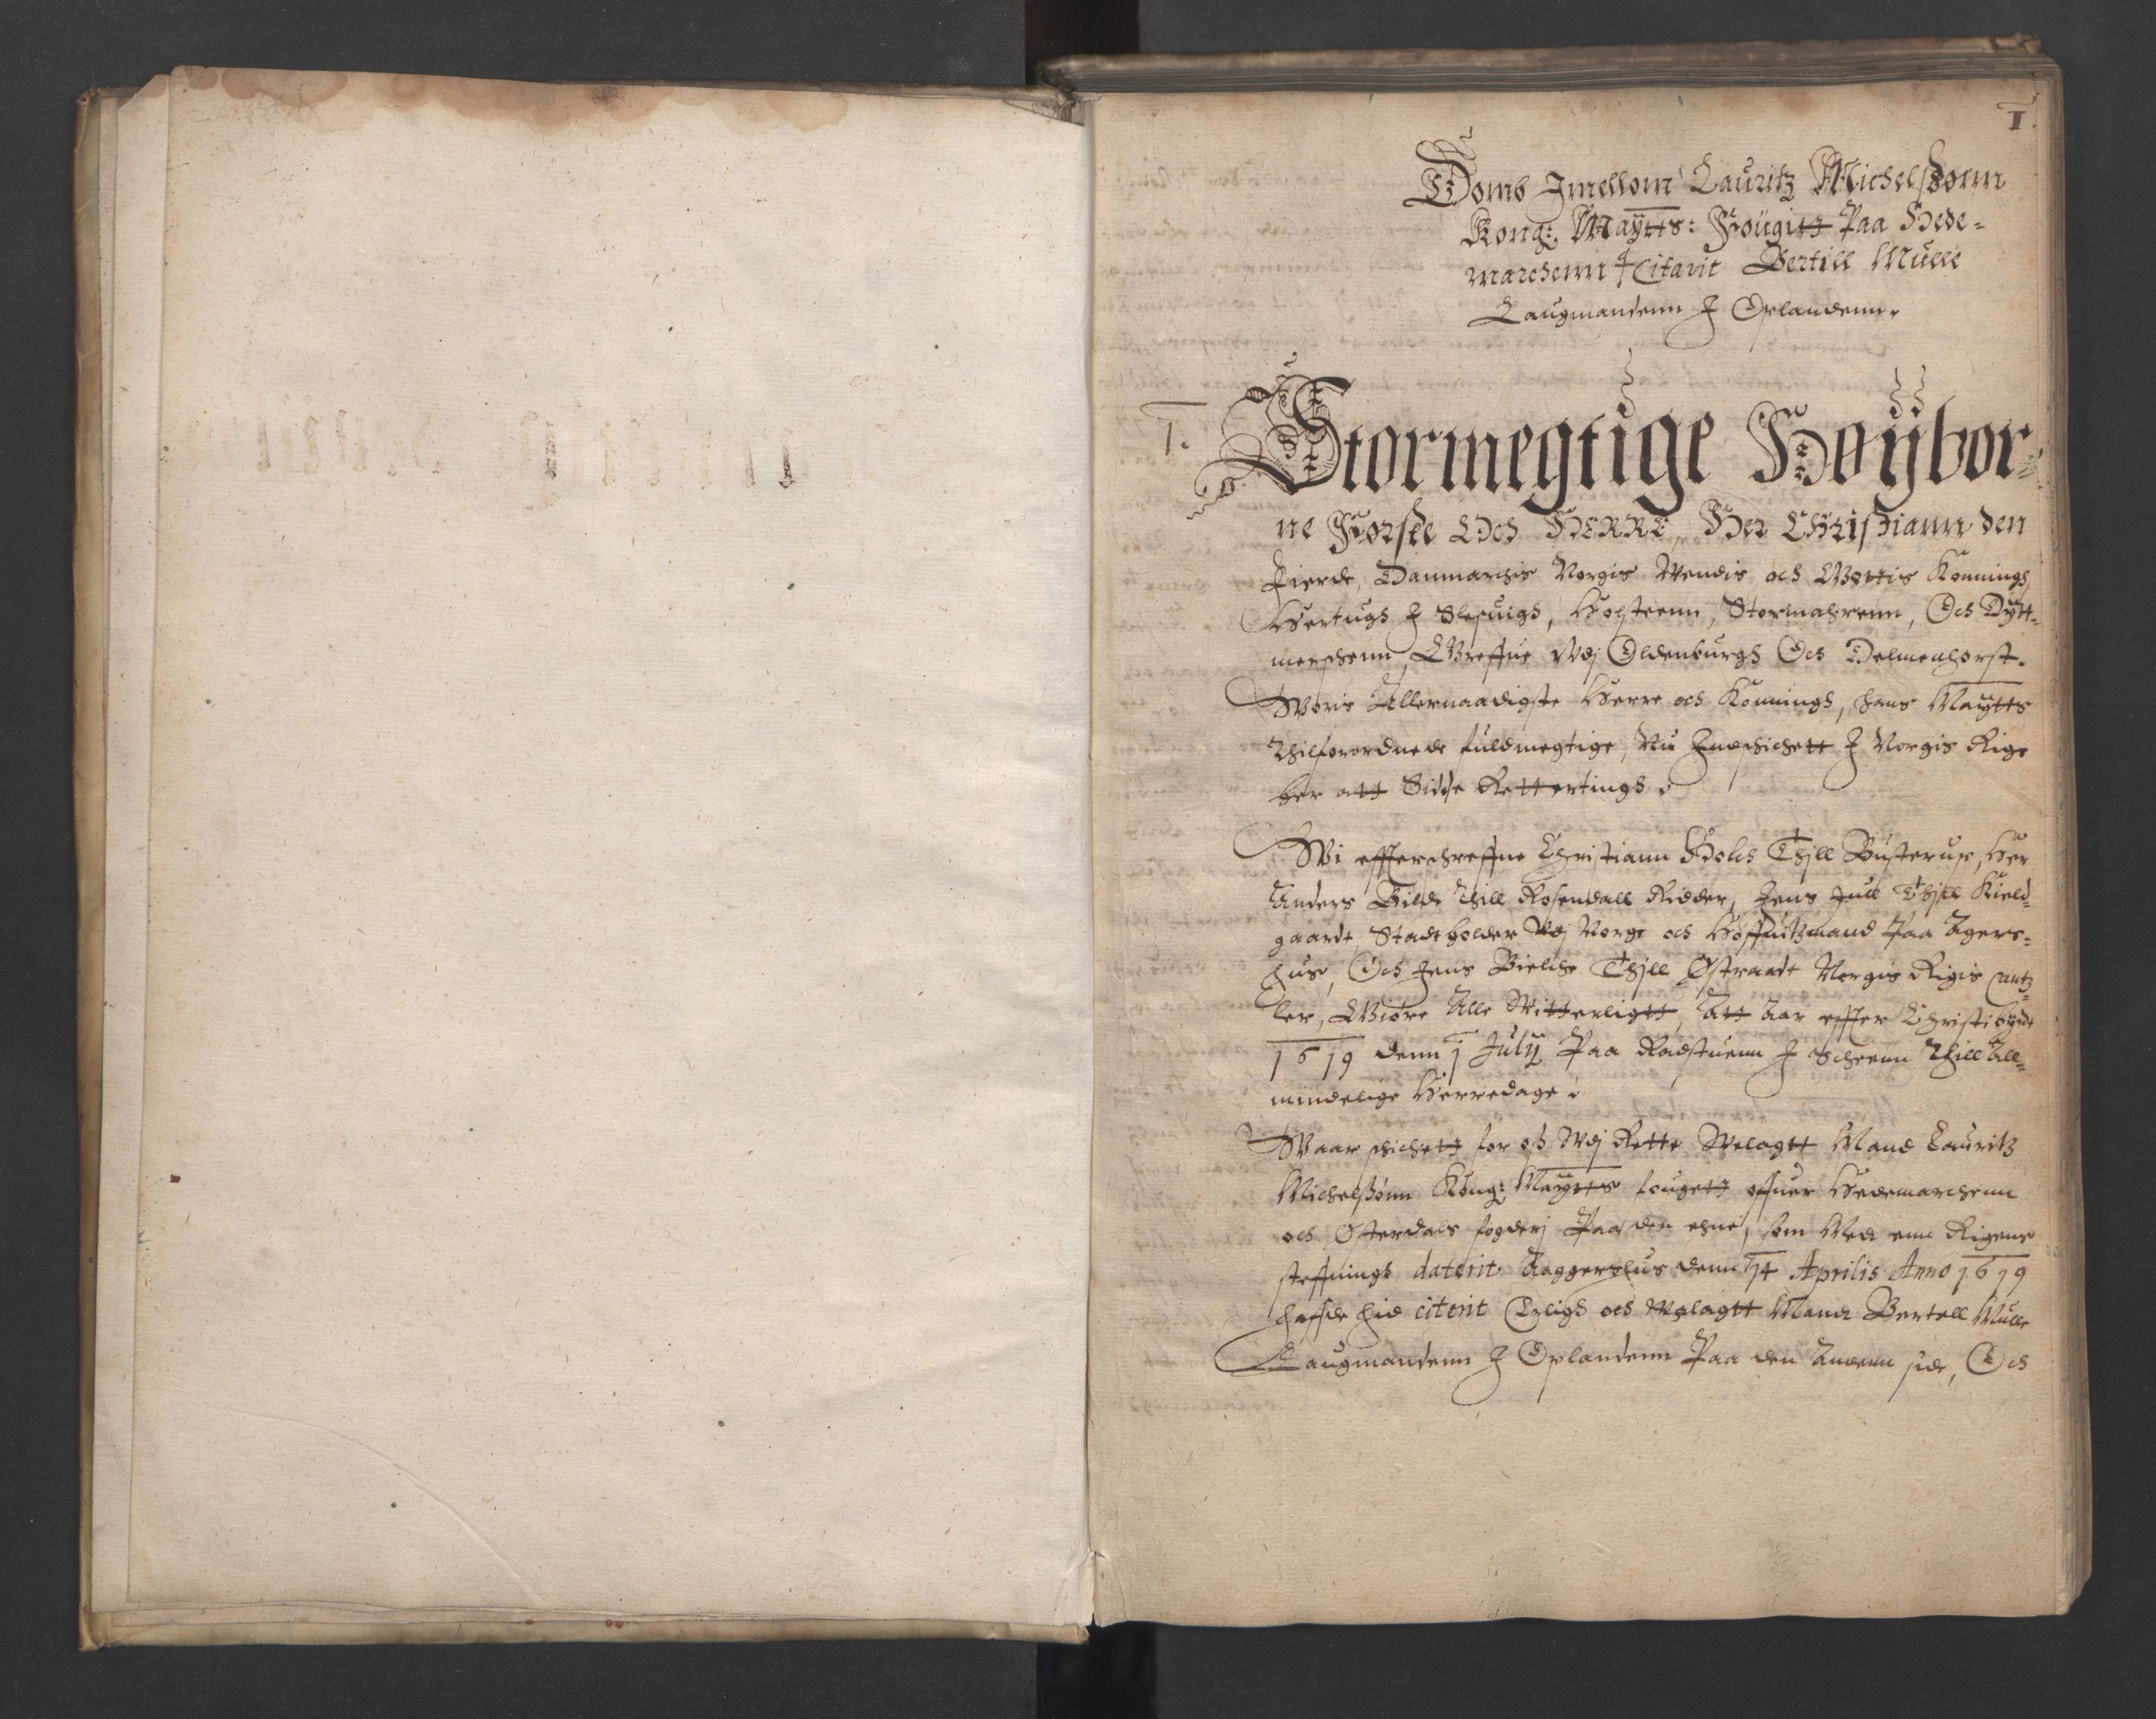 1.
Domb Imellom Lauritz Michelsønn
Kong: Maÿtts: Fougitt Paa Hede-
marchenn / Citavit Bertill Mulle
Laugmandenn I Oplandenn.
1. Stormegtige Høÿbor-
ne Første Och HERRE, Her Christiann den
Fierde, Danmarchis Norgis Wendis och Gottis Konningh
Hertugh I Slesuigh, Holsteenn, Stormahrenn, Och Dÿtt-
merschenn, Greffue wdj Oldenburgh Och Delmenhorst.
Woris Allernaadigste Herre och Konningh, hans Maÿtts
Thilforordnede fuldmegtige, Nu Indschichett I Norgis Rige
her att Sidde Retterting
Wi effterschreffne Christiann Holch Thill Busterup, Her
Anders Bilde Thill Rosenuall Ridder, Jens Jull Thill Kield-
gaardt, Stadtholder wdj Norge och Høffuitzmand Paa Agers-
huus, Och Jens Bielche Thill Østraadt Norgis Rigis Cantz-
ler, Giøre Alle Witterligtt, Att Aar effter Christi bÿrdt
1619 denn 1 Julÿ Paa Raadstuenn I Scheenn Thill All-
mindelige Herredage
Waar schichett for oß wdj Rette Welagtt Mand Lauritz
Michelsønn Kong: Maÿtts fougett offuer Hedemarchenn
och Østerdals fogderj Paa den ehne, som Med enn Rigens
steffningh daterit Aaggershuus denn 14 Aprilis Anno 1619
haffde hid citerit Erligh och Welagtt Mand Bertell Mulle
Laugmandenn I Oplandenn Paa den Andenn side, Och